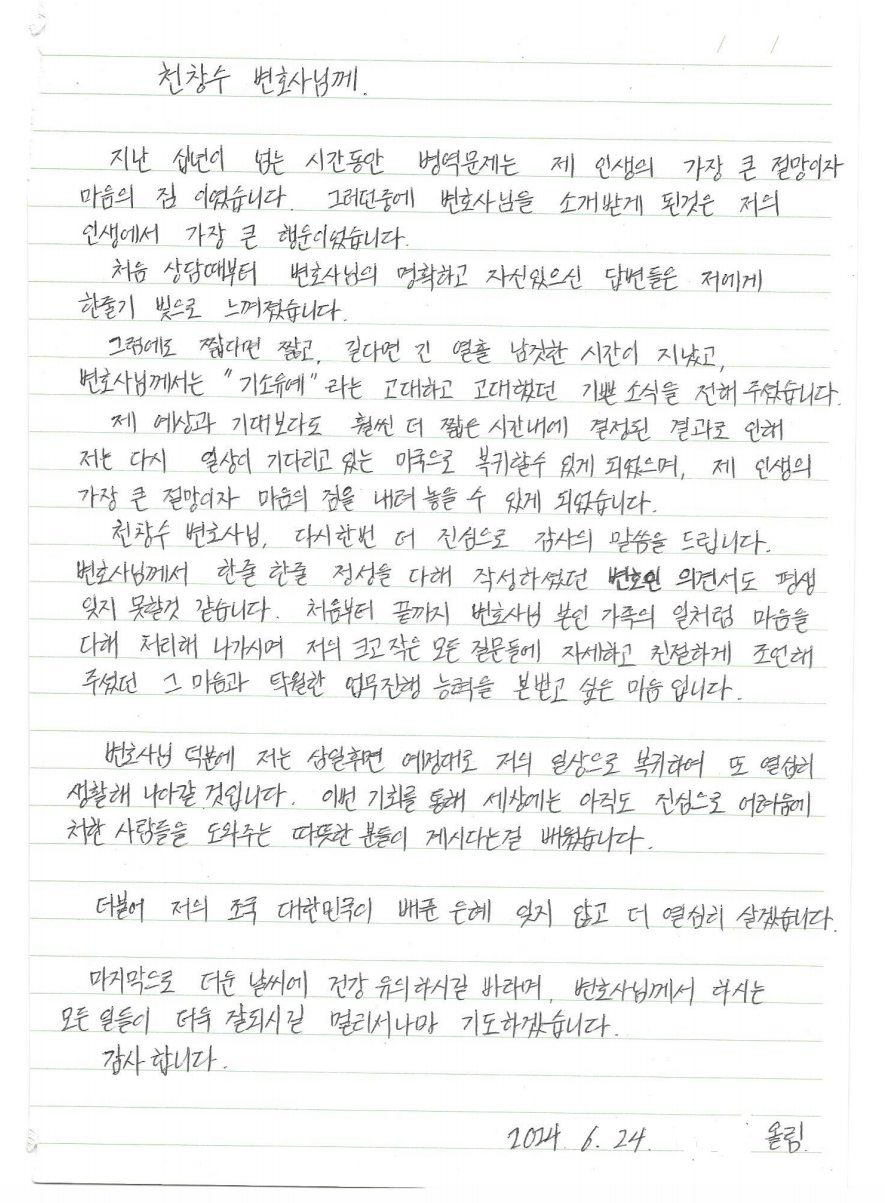 천창수 변호사님께.
지난 십년이 넘는 시간동안 병역문제는 제 인생의 가장 큰 절망이자
마음의 짐 이였습니다. 그러던중에 변호사님을 소개받게 된것은 저의
인생에서 가장 큰 행운이었습니다.
처음 상담때부터 변호사님의 명확하고 자신있으신 답변들은 저에게
한줄기 빛으로 느껴졌습니다.
그럼에도 짧다면 짧고, 길다면 긴 열흘 남짓한 시간이 지났고,
변호사님께서는 "기소유예"라는 고대하고 고대했던 기쁜 소식을 전해 주셨습니다.
제 예상과 기대보다도 훨씬 더 짧은 시간내에 결정된 결과로 인해
저는 다시 일상이 기다리고 있는 미국으로 복귀할수 있게 되었으며, 제 인생의
가장 큰 절망이자 마음의 짐을 내려 놓을 수 있게 되었습니다.
천창수 변호사님, 다시한번 더 진심으로 감사의 말씀을 드립니다.
변호사님께서 한줄 한줄 정성을 다해 작성하셨던 변호인 의견서도 평생
잊지 못할것 같습니다. 처음부터 끝까지 변호사님 본인 가족의 일처럼 마음을
다해 처리해 나가시며 저의 크고작은 모든 질문들에 자세하고 친절하게 조언해
주셨던 그 마음과 탁월한 업무진행 능력을 본받고 싶은 마음 입니다.
변호사님 덕분에 저는 삼일후면 예정대로 저의 일상으로 복귀하여 또 열심히
생활해 나아갈 것입니다. 이번 기회를 통해 세상에는 아직도 진심으로 어려움에
처한 사람들을 도와주는 따뜻한 분들이 계시다는걸 배웠습니다.
더불어 저의 조국 대한민국이 베푼 은혜 잊지 않고 더 열심히 살겠습니다.
마지막으로 더운 날씨에 건강 유의하시길 바라며, 변호사님께서 하시는
모든 일들이 더욱 잘되시길 멀리서나마 기도하겠습니다.
감사합니다.
2024. 6. 24. 올림.